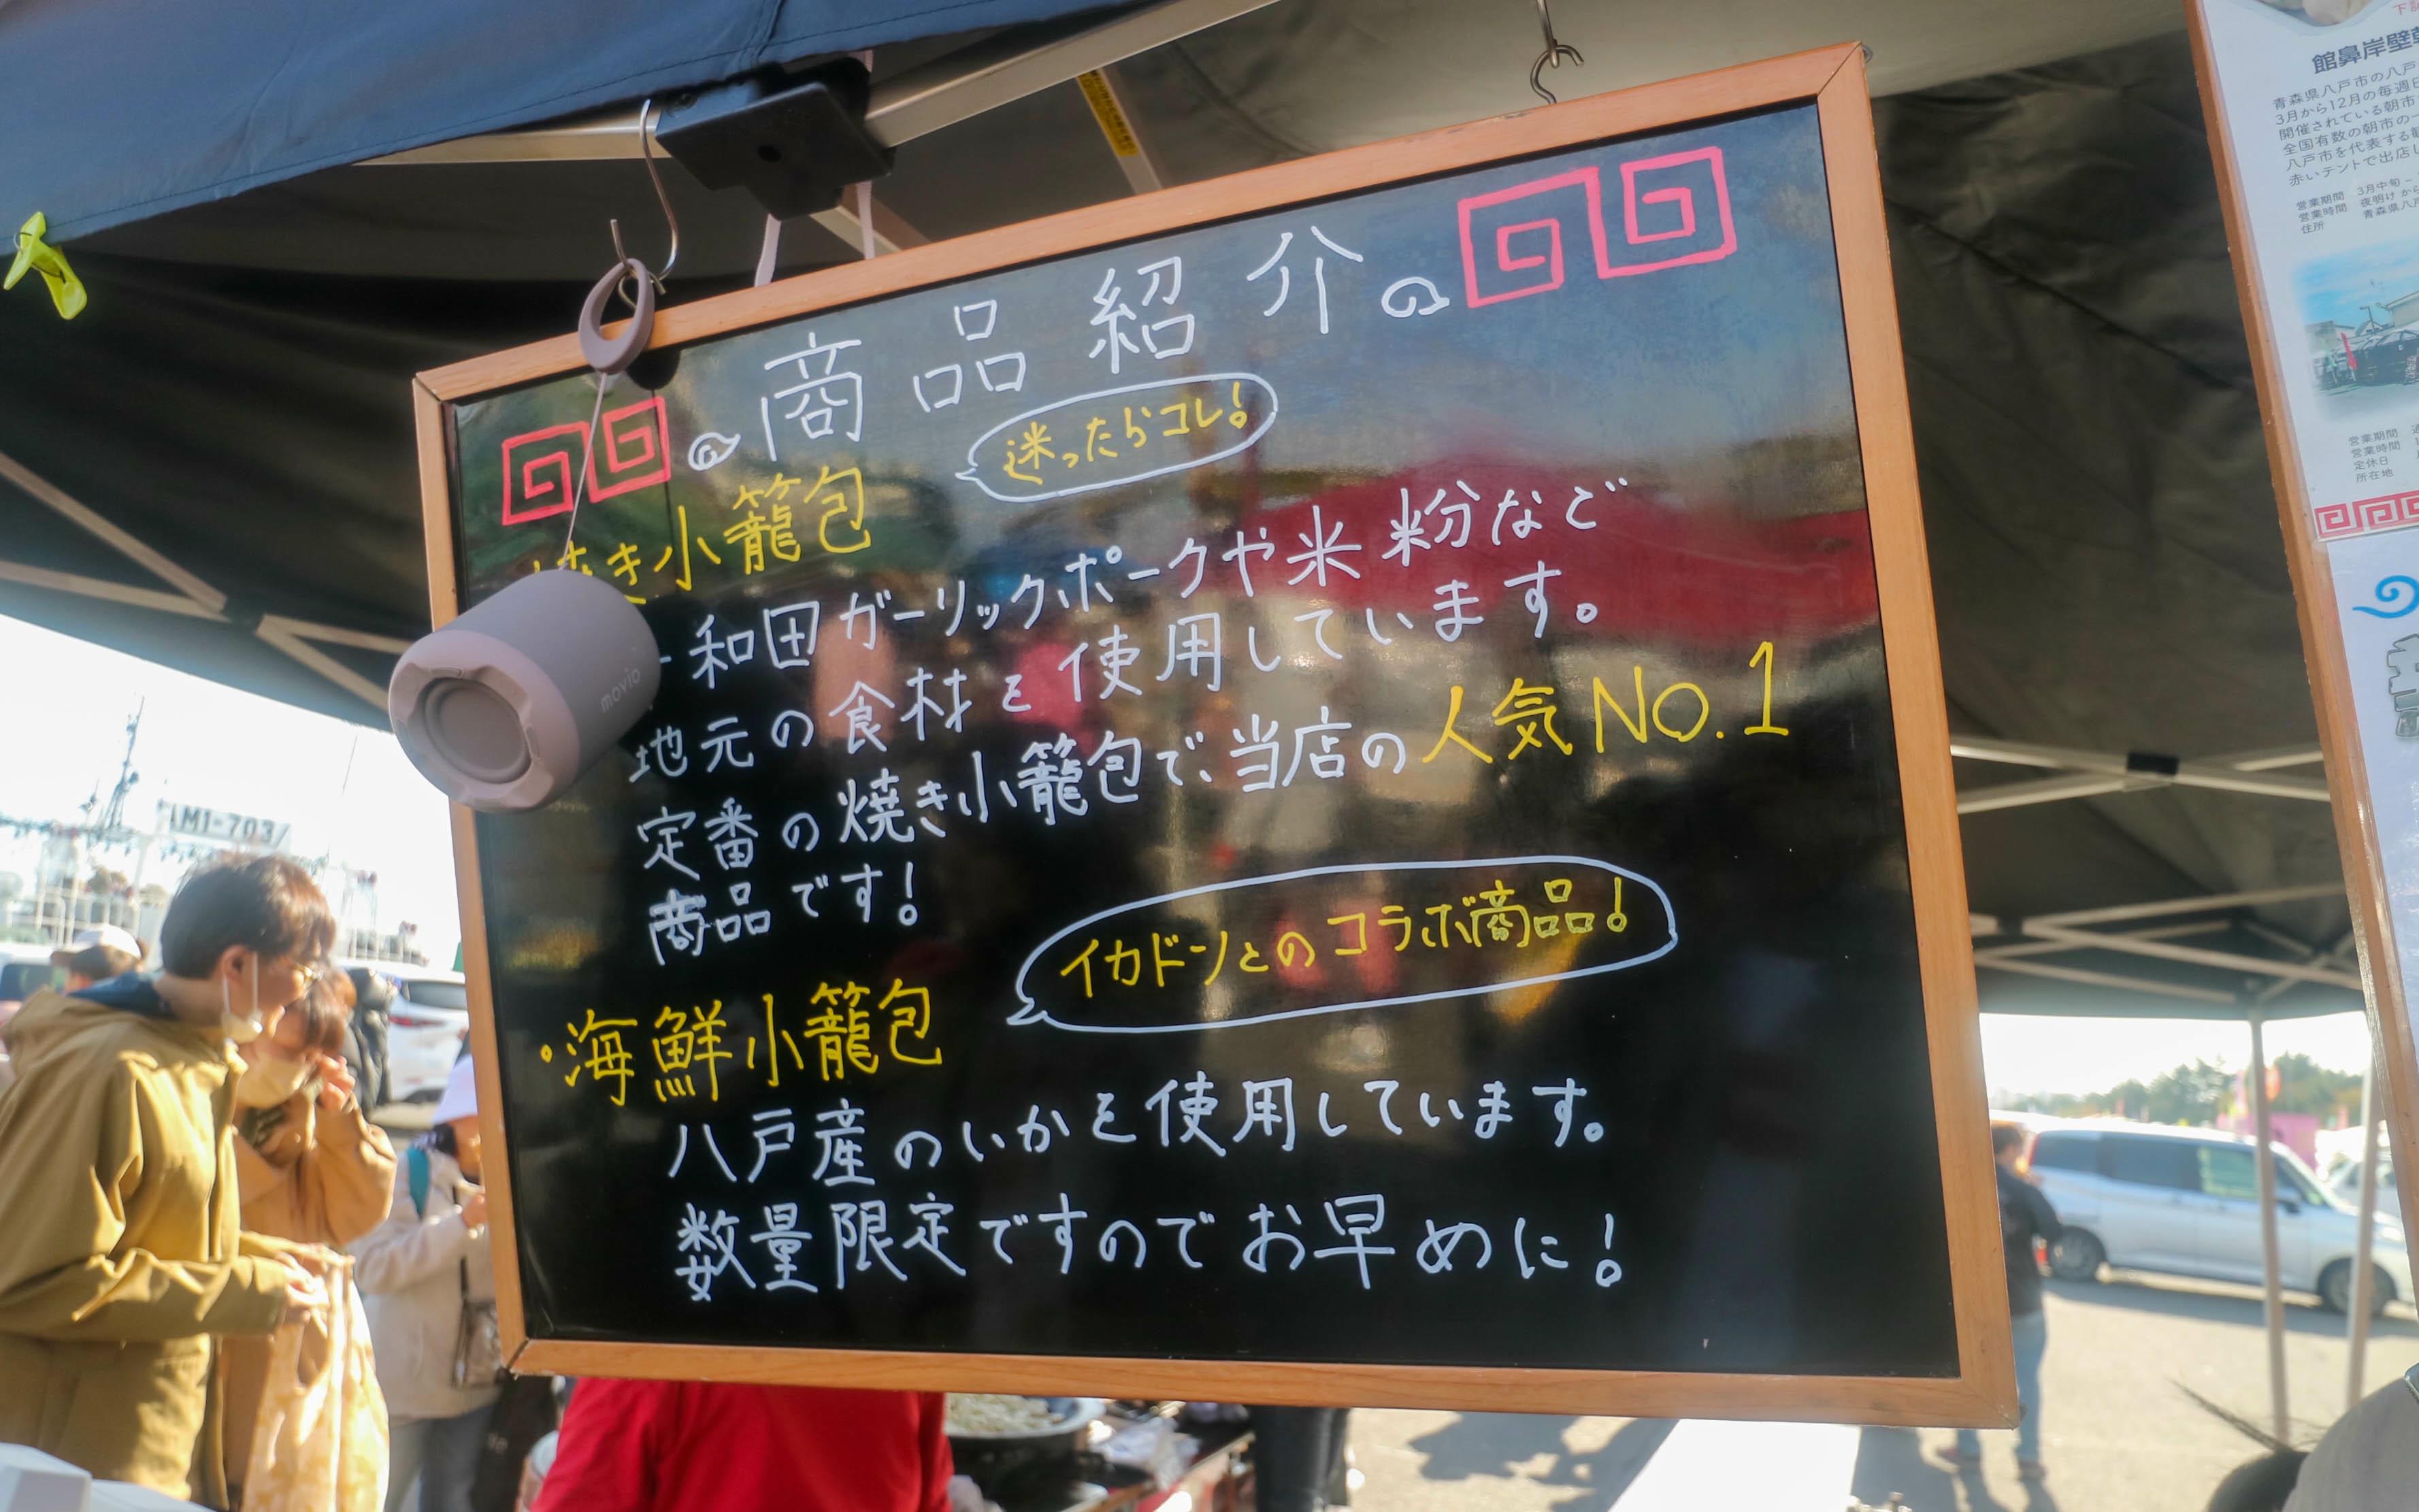 商品紹介
迷ったらコレ!
き小籠包
和田ガーリックポークや米粉など
地元の食材を使用しています。
定番の焼き小籠包で、当店の人気No.1
商品です!
イカドンとのコラボ商品!
・海鮮小籠包
八戸産のいかを使用しています。
数量限定ですのでお早めに!
movio
館鼻岸壁
青森県八戸市の八戸
3月から12月の毎週日
開催されている朝市
全国有数の朝市の一
八戸市を代表する
赤いテントで出店し
営業期間 3月中旬~
営業時間 夜明けから
住所 青森県八戸
営業期間
営業時間
定休日
所在地